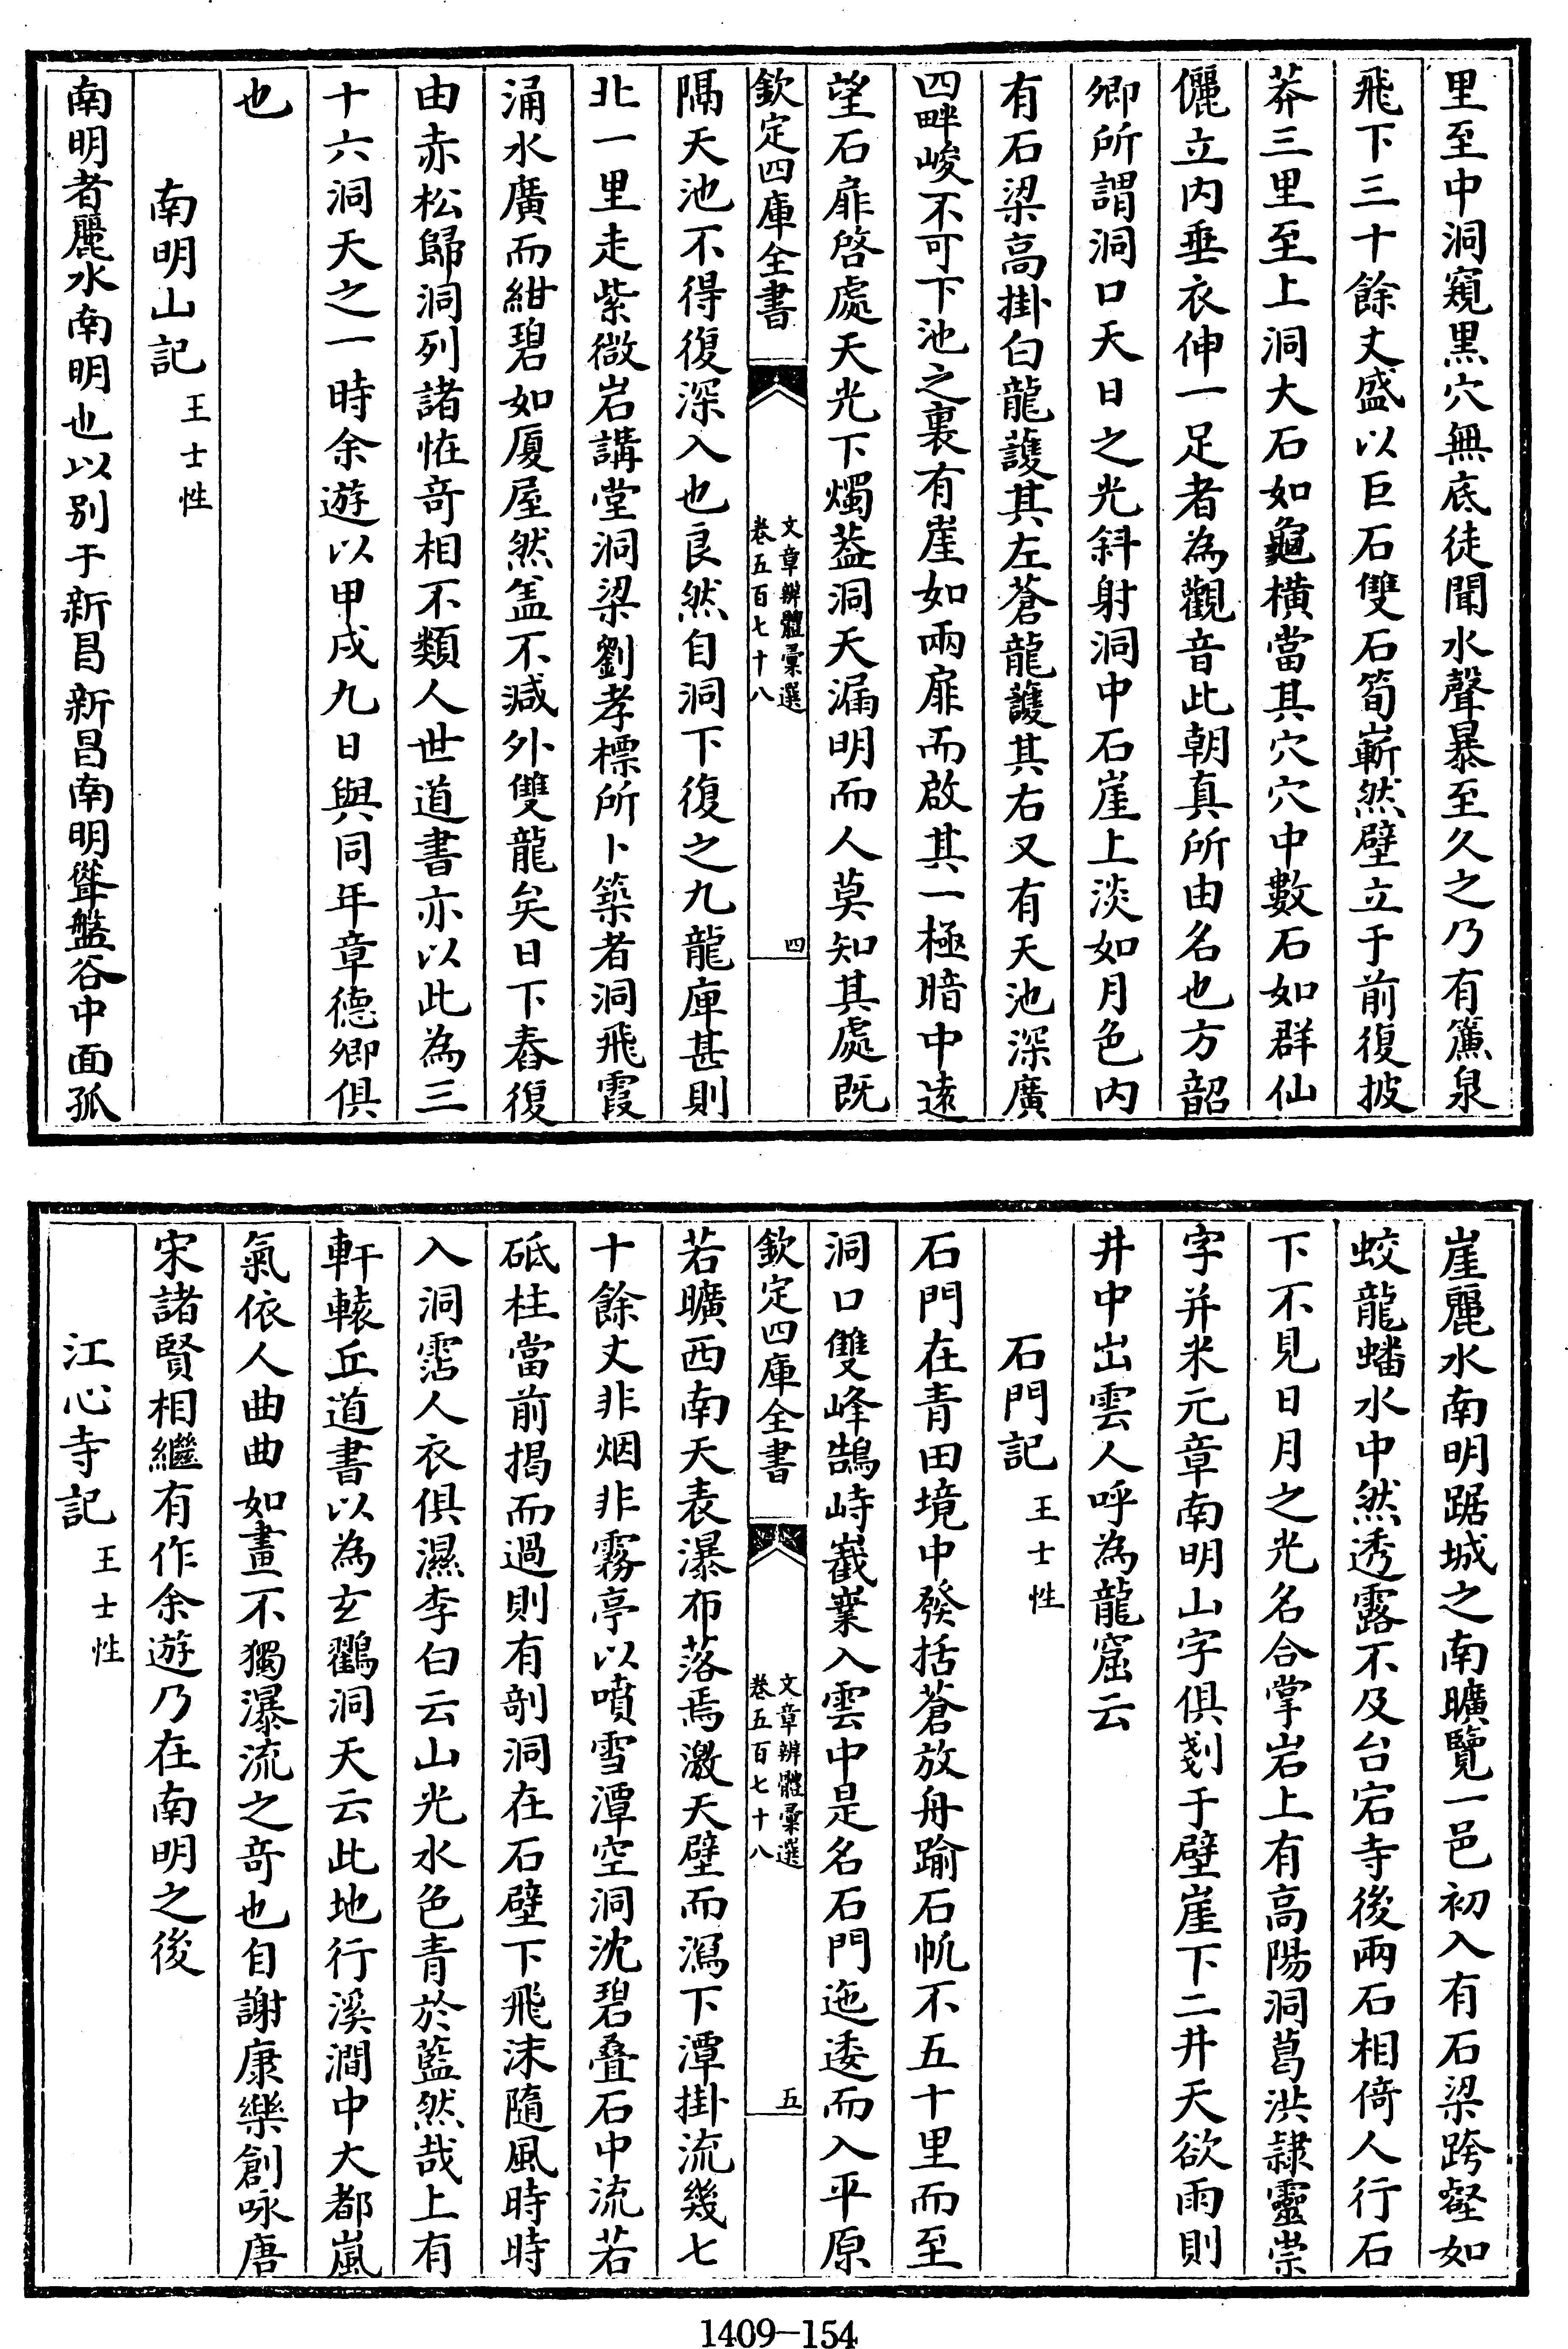 里至中洞窺黑穴無底徒聞水聲暴至久之乃有簾泉
飛下三十餘丈盛以巨石雙石筍嶄然壁立于前復披
莽三里至上洞大石如龜橫當其穴穴中數石如群仙
儷立内垂衣伸一足者為觀音此朝真所由名也方韶
卿所謂洞口天日之光斜射洞中石崖上淡如月色内
有石梁高掛白龍護其左蒼龍護其右又有天池深廣
四畔峻不可下池之裏有崖如兩扉而啟其一極暗中遠
望石扉啓處天光下燭葢洞天漏明而人莫知其處既
欽定四庫全書
文章辨體彙選
卷五百七十八
四
隔天池不得復深入也良然自洞下復之九龍庫甚則
北一里走紫微岩講堂洞梁劉孝標所卜築者洞飛霞
涌水廣而紺碧如厦屋然盖不減外雙龍矣日下舂復
由赤松歸洞列諸恠奇相不類人世道書亦以此為三
十六洞天之一時余遊以甲戌九日與同年章德卿俱
也
南明山記 王士性
南明者麗水南明也以别于新昌新昌南明聳盤谷中面孤
崖麗水南明踞城之南曠覽一邑初入有石梁跨壑如
蛟龍蟠水中然透露不及台宕寺後兩石相倚人行石
下不見日月之光名合掌岩上有高陽洞葛洪隷靈崇
字并米元章南明山字俱剗于壁崖下二井天欲雨則
井中出雲人呼為龍窟云
石門記 王士性
石門在青田境中發括蒼放舟踰石帆不五十里而至
洞口雙峰鵠峙嶻嶪入雲中是名石門迤逶而入平原
欽定四庫全書
文章辨體彙選
卷五百七十八
五
若曠西南天表瀑布落焉激天壁而瀉下潭掛流幾七
十餘丈非烟非霧亭以噴雪潭空洞沈碧叠石中流若
砥柱當前揭而過則有剖洞在石壁下飛沫隨風時時
入洞霑人衣俱濕李白云山光水色青於藍然哉上有
軒轅丘道書以為玄鶴洞天云此地行溪澗中大都嵐
氣依人曲曲如畫不獨瀑流之奇也自謝康樂創咏唐
宋諸賢相繼有作余遊乃在南明之後
江心寺記 王士性
1409-154